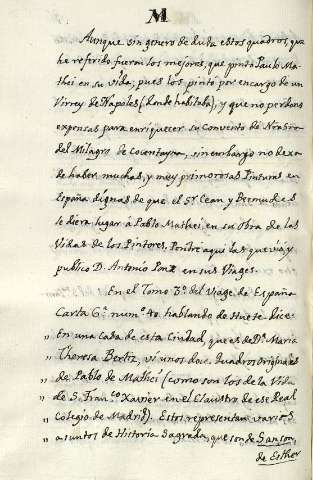 M
Aunque sin genero de duda estos quadros, que
he referido fueron los mejores, que pintó Paulo Ma-
thei en su vida, pues los pintó por encargo de un
Virrey de Napoles (donde habitaba), y que no perdonó
expensas para enriquecer su Convento de Nra Sra
del Milagro de Cocentayna, sin embargo no dexa
de haber muchas, y muy primorosas Pinturas en
España dignas de que el Sr. Cean y Bermudes
le diera lugar á Pablo Mathei en su Obra de las
Vidas de los Pintores. Pondré aqui las que vió, y
publicó D. Antonio Ponz en sus Viages.
En el Tomo 3º del Viage de España
Carta 6ª num.º 40 hablando de Huete dice:
En una Casa de esta Ciudad, que es de Dª Maria
„ Theresa Bertiz, vi unos doce Quadros Originales
„ de Pablo de Mathei (como son los de la Vida
„ de S. Franco Xavier en el Claustro de ese Real
„ Colegio de Madrid). Estos representan varios
„ asuntos de Historia Sagrada, que son de Sanson,
de Esther